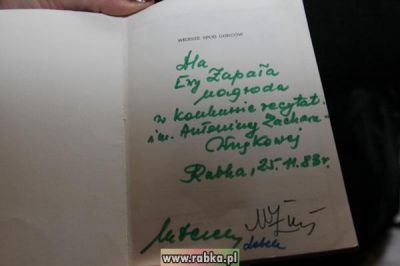 WIERSZE SPOD GORCÓW
Dla
Ewy Zapała
nagroda
w konkursie recytat.
im. Antoniny Zachara-
Wnękowej
Rabka, 25.11.83r.
www.rabka.pl